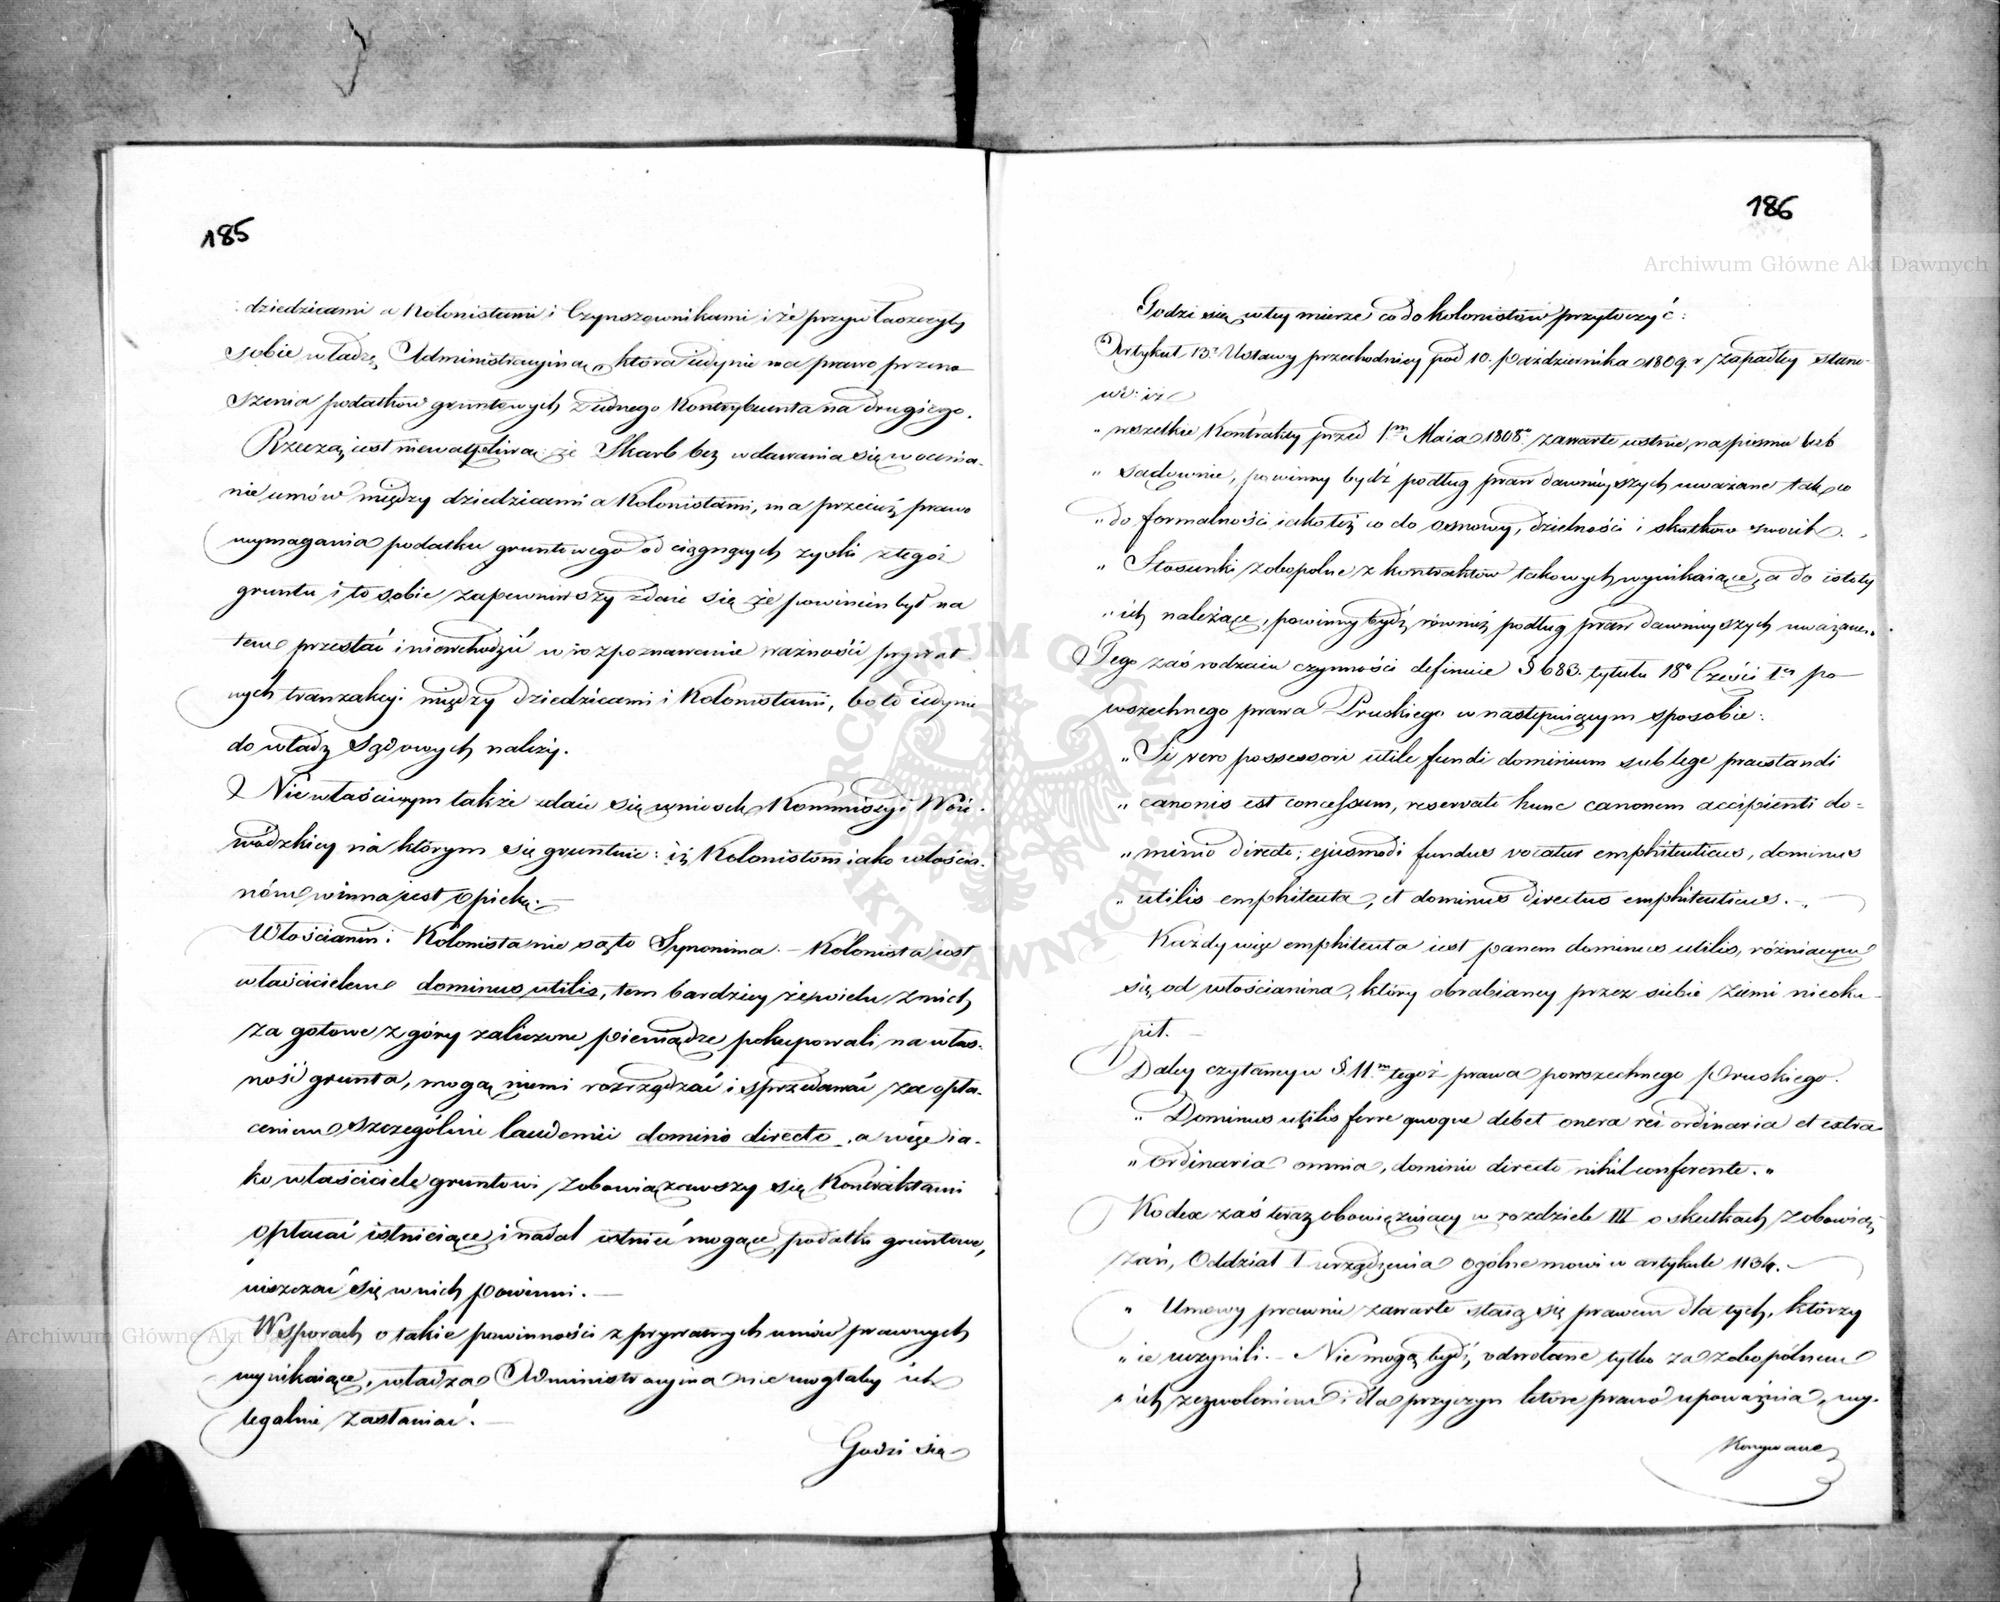 185
dziedzicami a Kolonistami i Czynszownikami i że przywłaszczyły
sobie władzę Administracyiną, która iedynie ma prawo przeno
szenia podatków gruntowych z iednego Kontrybuenta na drugiego.
Rzeczą iest niewątpliwą: że Skarb bez wdawania się w ocenia-
nie umów między dziedzicami a Kolonistami, ma przecież prawo
wymagania podatku gruntowego od ciągnących zyski z tegoż
gruntu i to sobie zapewniwszy zdaie się że powinien był na
tem przestać i niewchodzić w rozpoznawanie ważności prywat
nych tranzakcyi między dziedzicami i Kolonistami, bo to iedynie
do władz Sądowych należy.
Niewłaściwym także zdaie się wniosek Kommissyi Woie-
wódzkiey na którym się gruntuie: iż Kolonistom iako włościa-
nom winna jest opiekę. —
Włościanin i Kolonista nie są to Synonima. — Kolonista iest
właścicielem dominus utilis, tem bardziey że wielu z nich
za gotowe z góry zaliczone pieniądze pokupowali na włas-
ność grunta, mogą niemi rozrządzać i sprzedawać za opła-
ceniem szczególnie laudemii domino directo, a więc ia-
ko właściciele gruntowi zobowiązawszy się Kontraktami
opłacać istnieiące i nadal istnieć mogące podatki gruntowe,
uiszczać się w nich powinni. —
W sporach o takie powinności z prywatnych umów prawnych
wynikaiące, władza Administracyina nie mogłaby ich
legalnie zasłaniać. —
Godzi się
186
Archiwum Główne Akt Dawnych
Godzi się w tey mierze co do kolonistów przytoczyć:
Artykuł 13ty Ustawy przechodniey pod 10. Października 1809. r zapadłey stano-
wi: iż
„ wszelkie Kontrakty przed 1m Maia 1808r zawarte ustnie, na piśmie lub
„ sądownie, powinny bydź podług praw dawnieyszych uważane tak co
„ do formalności iako też co do osnowy, dzielności i skutków swoich.
„ Stosunki zobopolne z kontraktów takowych wynikaiące, a do istoty
„ ich należące, powinny bydź również podług praw dawnieyszych uważane. "
Tego zaś rodzaiu czynności definiuie § 683. tytułu 18o Części 1ey po
wszechnego prawa Pruskiego w następuiącym sposobie:
„ Si vero possessori utile fundi dominium sub lege praestandi
„ canonis est concessum, reservato hunc canonem accipienti do=
„ minio directo; ejusmodi fundus vocatur emphiteuticus, dominus
„ utilis emphiteuta, et dominus directus emphiteuticus. —
Każdy więc emphiteuta iest panem dominus utilis, różniącym
się od włościanina, który obrabianey przez siebie ziemi nieoku-
pił. —
Daley czytamy w § 11m tegoż prawa powszechnego Pruskiego.
„ Dominus utilis ferre quoque debet onera rei ordinaria et extra
„ ordinaria omnia, dominio directo nihil conferente. "
Kodex zaś teraz obowiązuiący w rozdziele III o skutkach zobowią-
zań, Oddział I urządzenia ogólne mowi w artykule 1134. —
„ Umowy prawnie zawarte staią się prawem dla tych, którzy
„ ie uczynili. — Nie mogą bydź odwołane tylko za zobopólnem
„ ich zezwoleniem i dla przyczyn które prawo upoważnia, wy-
Konywane
Archiwum Główne Akt Dawnych
ARCHIWUM GŁÓWNE AKT DAWNYCH